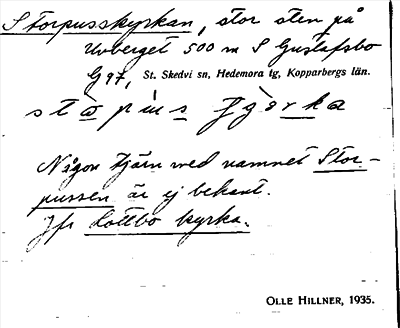 Storpusskyrkan, stor sten på
Uvberget 500 m S Gustafsbo
G 97, St. Skedvi sn, Hedemora tg, Kopparbergs län.
Någon tjärn med namnet Stor-
pussen är ej bekant.
Jfr Kottbo kyrka.
OLLE HILLNER, 1935.